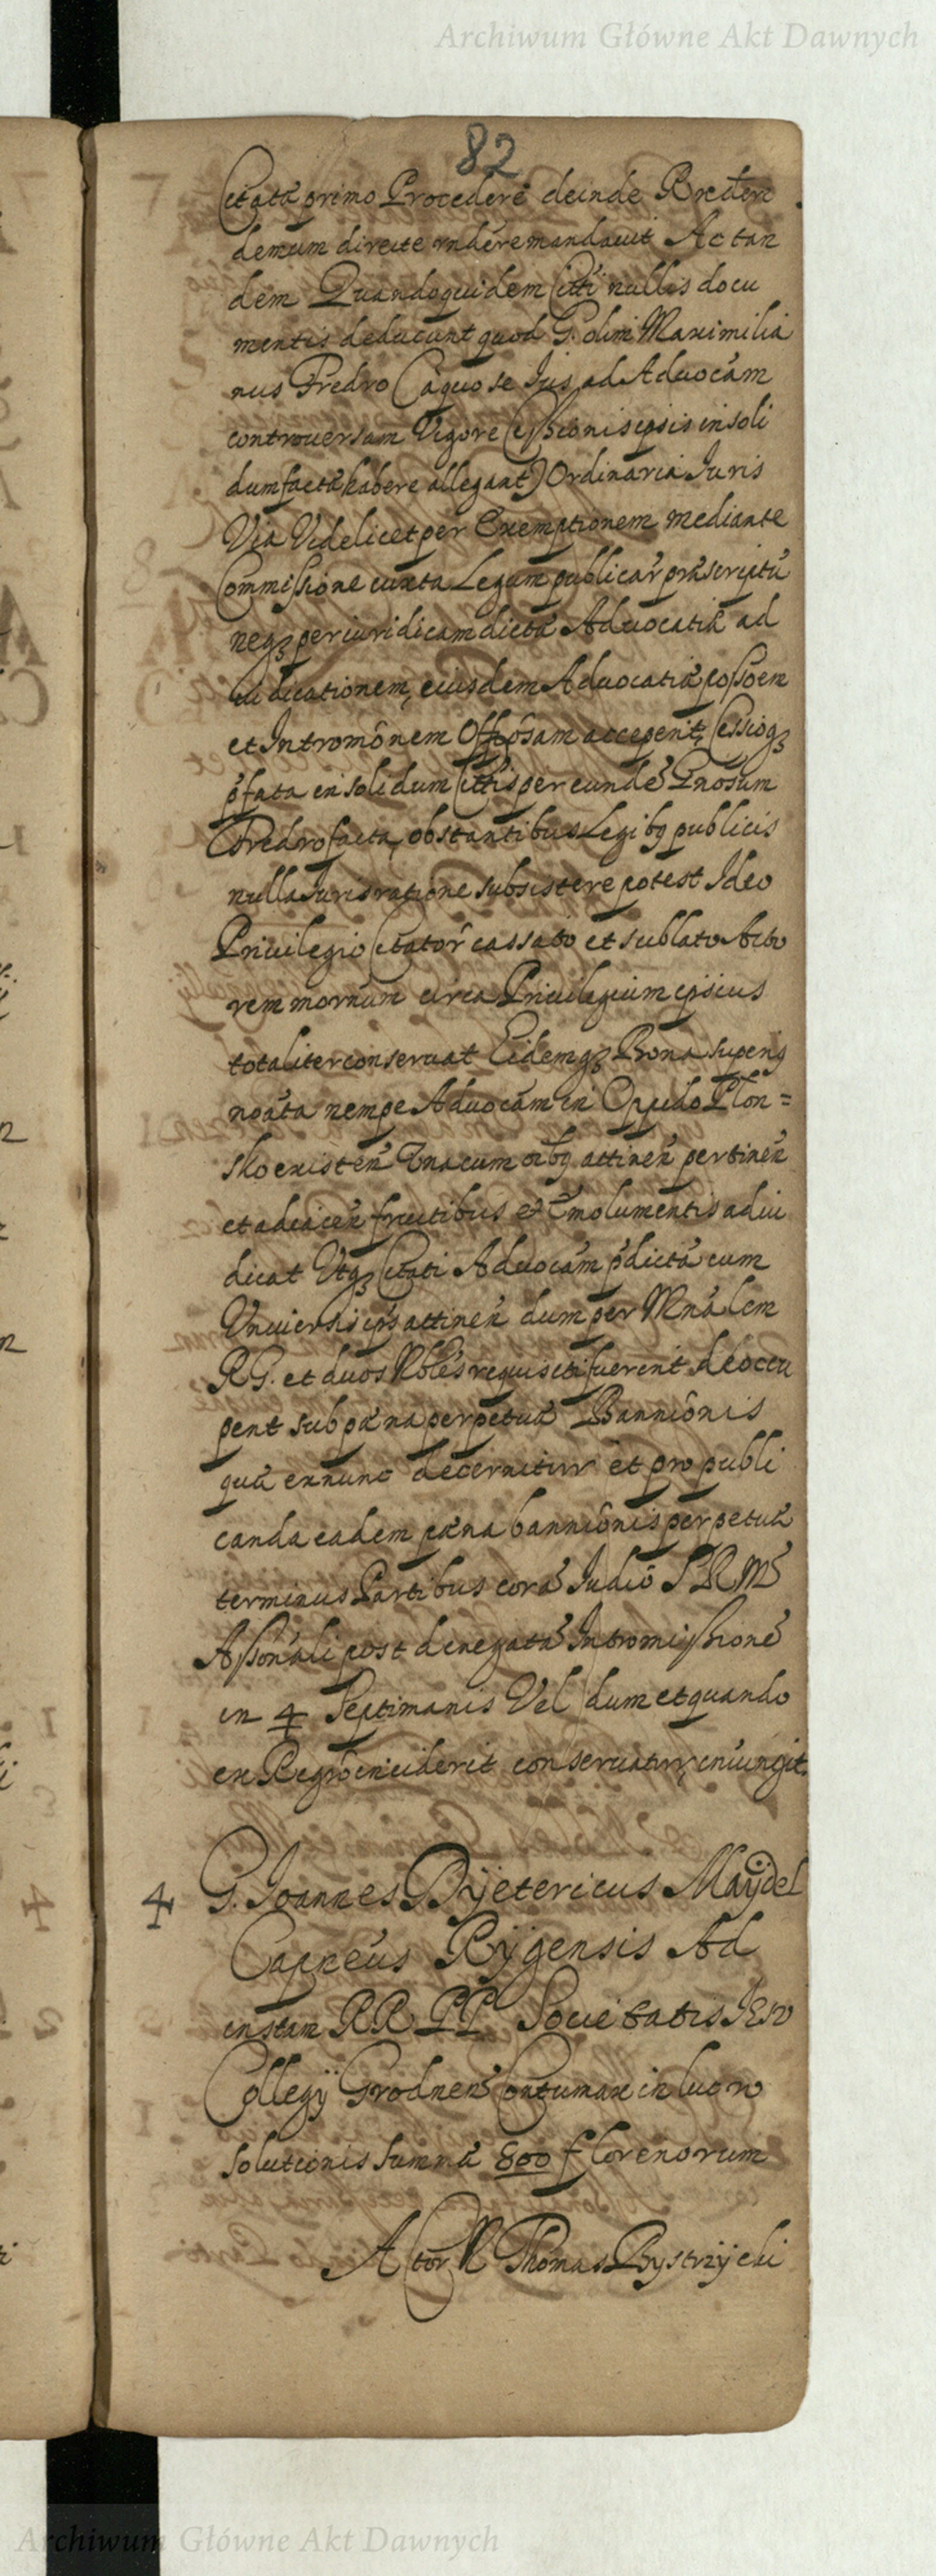 Archiwum Główne Akt Dawnych
82
Citatã primo Procedere deinde Recedere
demum directe rndére mandauit Ac tan
dem Quandoquidem Citti nullis docu
mentis deducunt quod G. olim Maximilia
nus Fredro (a quo se Ius ad Aduocâm
controuersam Vigore Cessionis ipsis in soli
dum factæ habere allegant) Ordinaria Iuris
Via Videlicet per Exemptionem mediante
Commissione iuxta Legum publicar̃ præscriptũ
neqз per iuridicam dictæ Aduocatiæ ad
iudicationem, eiusdem Aduocatiæ possoem
et Intromônem Offôsam acceperit, Cessioqз
pfata in solidum Cittis per eundẽ Gnosum
Fredro facta, obstantibus Legibз publicis
nulla Iuris ratione subsistere potest Ideo
Priuilegio Citator̃ cassato et sublato Acto
rem mornum circa Priuilegium ipsius
totaliter conseruat Eidemqз Bona superiз
noâta nempe Aduocâm in Oppido Plon=
sko existeñ Vna cum oibз attineñ pertineñ
et adiaceñ fructibus et Emolumentis adiu
dicat Vtqз Citati Aduocâm pdictã cum
Vniuersis ips attineñ dum per Mnâlem
RG. et duos Nbles requisiti fuerint deoccu
pent sub pæna perpetuæ Bannîonis
quæ exnunc decernitur et pro publi
canda eadem pæna bannîonis perpetuæ
terminus Partibus corã Iudiõ SRM
Assonâli post denegatã Intromissionẽ
in 4 Septimanis Vel dum et quando
ex Regrõ inciderit conseruatur, iniungit.
4 G. Ioannes Dÿetericus Maÿdel
Capneus Rÿgensis Ad
instam RR PP Societatis IESV
Collegÿ Grodneñ Contumax in lucro
solutionis summæ 800 florenorum
Actor N Thomas Bystrzÿcki
Archiwum Główne Akt Dawnych